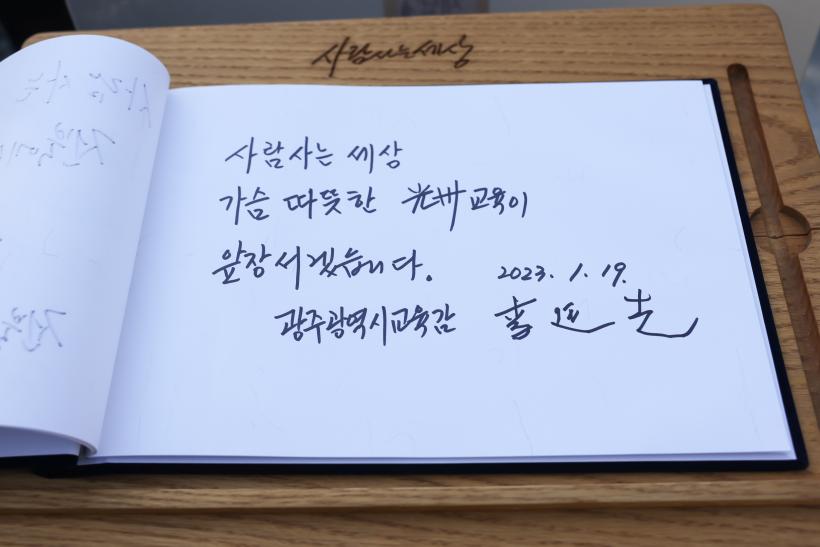 사람사는세상
사람사는 세상
가슴 따뜻한 光州교육이
앞장서겠습니다.
2023. 1. 19.
광주광역시교육감 李